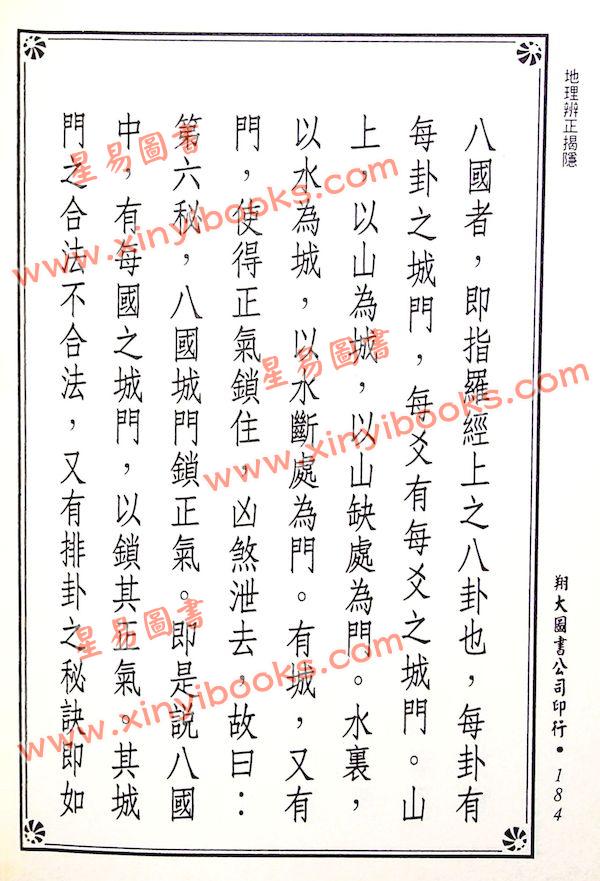 地理辨正揭隱
八國者，即指羅經上之八卦也，每卦有
每卦之城門，每爻有每爻之城門。山
上，以山為城，以山缺處為門。水裏，
以水為城，以水斷處為門。有城，又有
門，使得正氣鎖住，凶煞泄去，故曰：
第六秘，八國城門鎖正氣。即是說八國
中，有每國之城門，以鎖其正氣。其城
門之合法不合法，又有排卦之秘訣即如
翔大圖書公司印行•184
星易圖書
www.xinyibooks.com
星易圖書
www.xinyibooks.com
星易圖書
www.xinyibooks.com